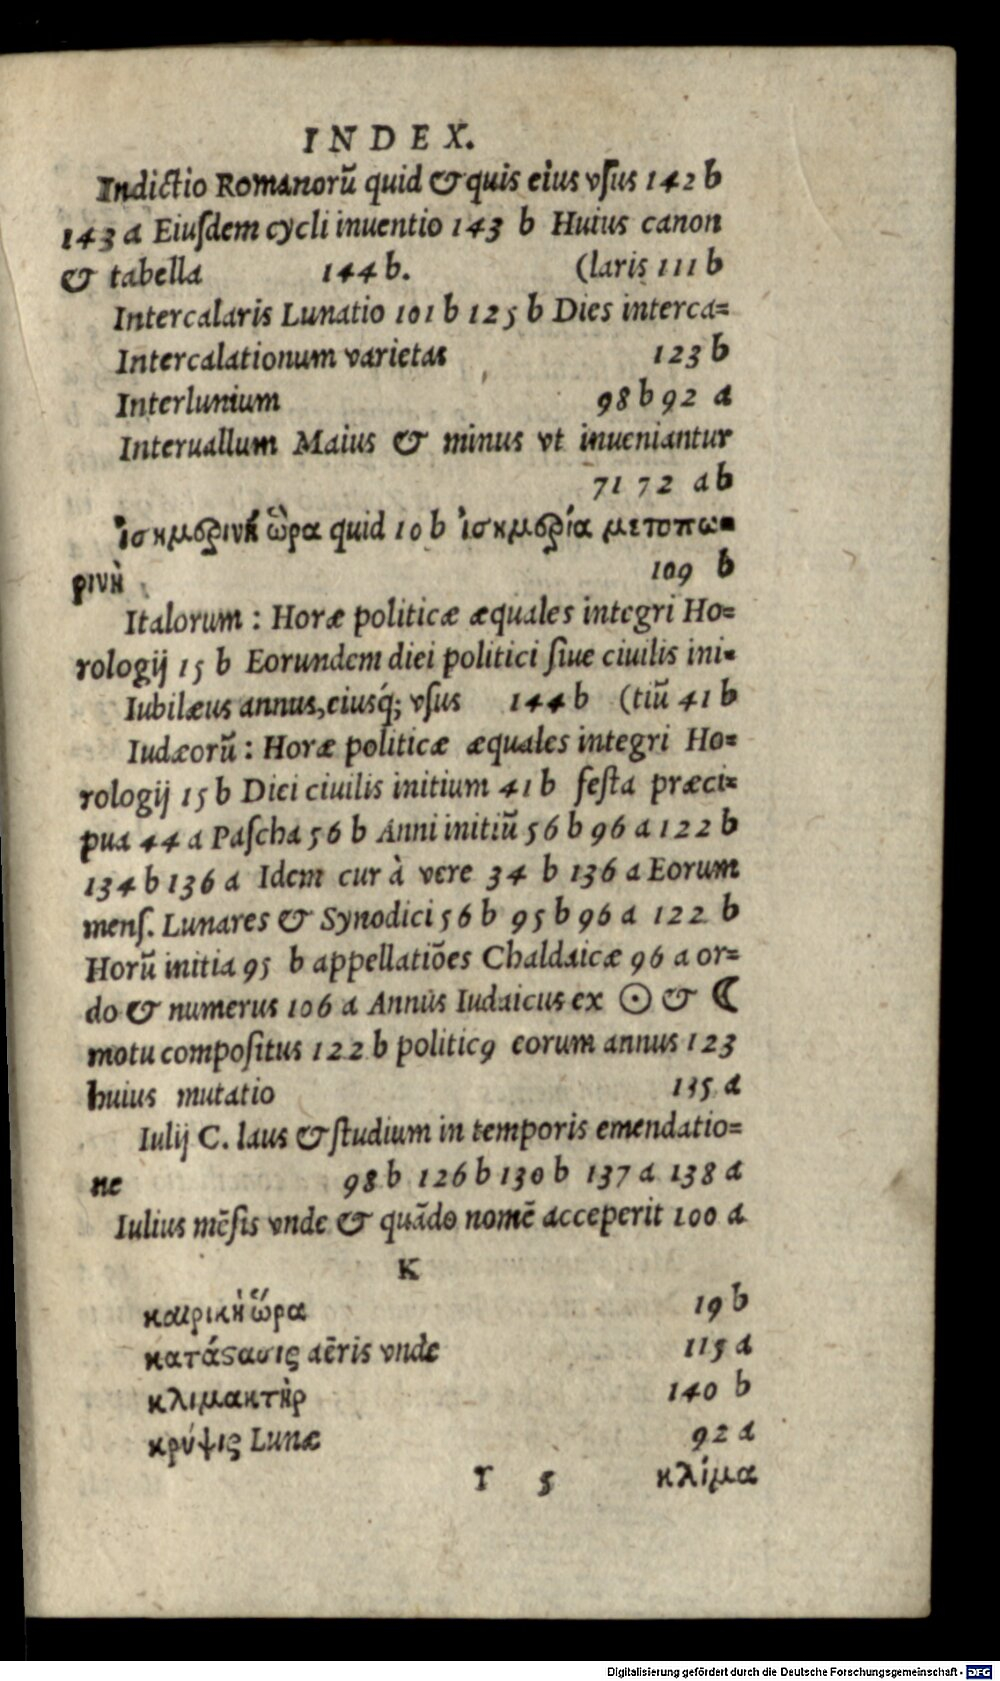 INDEX.
Indictio Romanorũ quid & quis eius vſus 142 b
143 a Eiuſdem cycli inuentio 143 b Huius canon
& tabella 144 b. (laris 111 b
Intercalaris Lunatio 101 b 125 b Dies interca=
Intercalationum varietas 123 b
Interlunium 98 b 92 a
Interuallum Maius & minus vt inueniantur
71 72 a b
ἰσημερινή ὥρα quid 10 b ἰσημερία μετοπω=
ρινὴ 109 b
Italorum : Horæ politicæ æquales integri Ho=
rologij 15 b Eorundem diei politici ſiue ciuilis ini=
Iubilæus annus, eiusq́; vſus 144 b (tiũ 41 b
Iudæorũ : Horæ politicæ æquales integri Ho=
rologij 15 b Diei ciuilis initium 41 b feſta præci=
pua 44 a Paſcha 56 b Anni initiũ 56 b 96 a 122 b
134 b 136 a Idem cur à vere 34 b 136 a Eorum
menſ. Lunares & Synodici 56 b 95 b 96 a 122 b
Horũ initia 95 b appellatiões Chaldaicæ 96 a or=
do & numerus 106 a Annus Iudaicus ex ☉ & ☾
motu compoſitus 122 b politicꝯ eorum annus 123
huius mutatio 135 a
Iulij C. laus & ſtudium in temporis emendatio=
ne 98 b 126 b 130 b 137 a 138 a
Iulius mẽſis vnde & quãdo nomẽ acceperit 100 a
K
καιρικὴ ὥρα 19 b
κατάϛασις aëris vnde 115 a
κλιμακτὴρ 140 b
κρύψις Lunæ 92 a
T 5 κλίμα
Digitalisierung gefördert durch die Deutsche Forschungsgemeinschaft - DFG